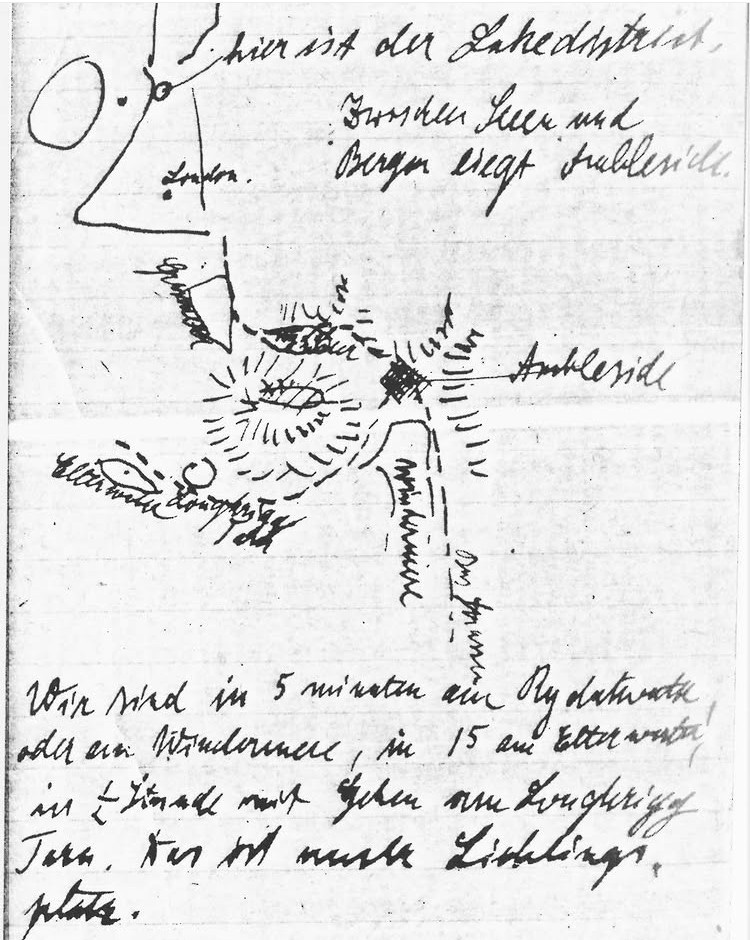 hier ist der Lakedistrict.
Zwischen Seen und
Bergen liegt Ambleside.
London.
Grasmere
Rydal
Ambleside
Elterwater
Loughrigg
Tarn
Windermere
Wir sind in 5 minuten am Rydalwater
oder am Windermere, in 15 am Elterwater,
in ½ Stunde mit Gehen am Loughrigg
Tarn. Das ist unser Lieblings-
platz.